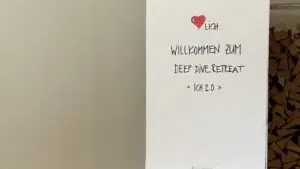 ❤LICH
WILLKOMMEN ZUM
DEEP DIVE RETREAT
"ICH 2.0"